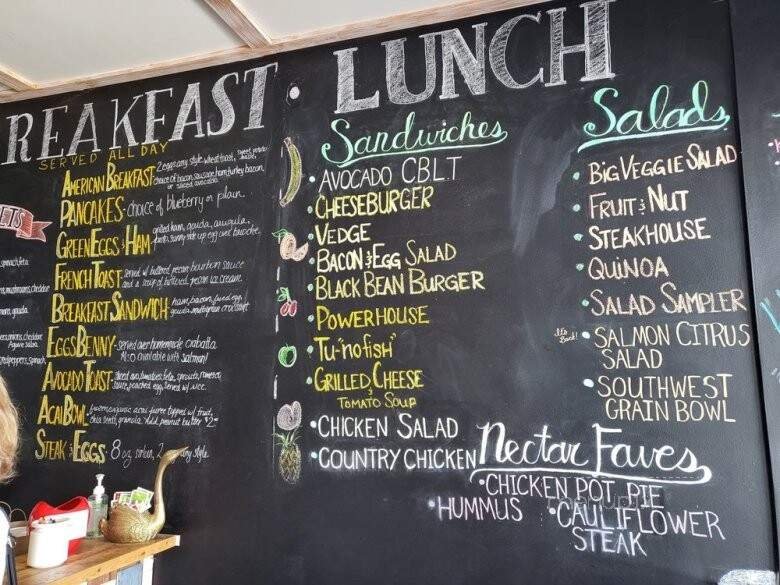 REAKFAST
SERVED ALL DAY
AMERICAN BREAKFAST- 2 eggs any style, wheat toast,
choice of bacon, sausage, ham, turkey bacon,
or sliced avocado.
PANCAKES- choice of blueberry or plain.
GREEN EGGS & HAM- grilled ham, gouda, arugula,
pesto, sunny side up egg over brioche
FRENCH TOAST- served w/ buttered pecan bourbon sauce
and a scoop of buttered pecan ice cream
BREAKFAST SANDWICH- ham, bacon, fried egg,
gouda, croissant
EGGS BENNY- served over homemade ciabatta
Also available with salmon!
AVOCADO TOAST-
sauce, poached egg. Served w/ rice.
ACAI BOWL- topped w/ fruit,
chia seeds, granola. Add peanut butter $2
STEAK & EGGS- 8oz sirloin, 2 any style.
ETS
spinach, feta
mushrooms, cheddar
gouda
onions, cheddar
peppers, spinach
LUNCH
Sandwiches
• AVOCADO CBLT
• CHEESEBURGER
• VEDGE
• BACON & EGG SALAD
• BLACK BEAN BURGER
• POWERHOUSE
• TU-"no fish"
• GRILLED CHEESE
& TOMATO SOUP
• CHICKEN SALAD
• COUNTRY CHICKEN
Salads
• BIG VEGGIE SALAD
• FRUIT & NUT
• STEAKHOUSE
• QUINOA
• SALAD SAMPLER
It's Back!
• SALMON CITRUS
SALAD
• SOUTHWEST
GRAIN BOWL
Nectar Faves
• CHICKEN POT PIE
• HUMMUS • CAULIFLOWER
STEAK